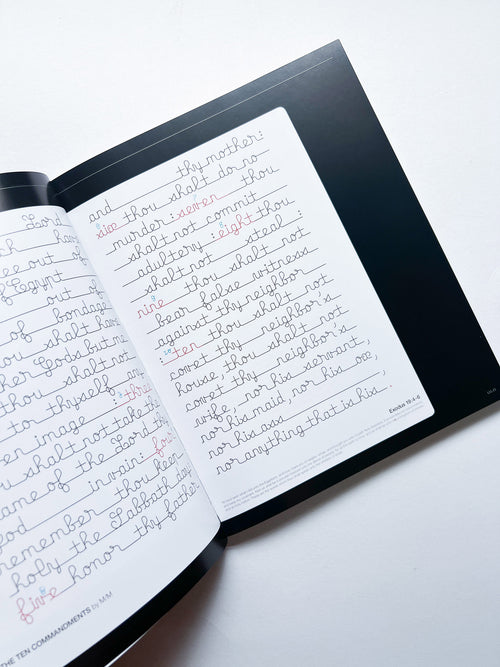 Lord
of hav
see out of
of Egypt
out of
of bondage
thou shalt have
her Gods but me
thou shalt not
to thyself any
en image : three
u shalt not take th
ame of the Lord thy
God in vain : four
remember thou keep
holy the Sabbath day
five honor thy father
THE TEN COMMANDMENTS by M/M
and thy mother :
six thou shalt do no
murder : seven thou
shalt not commit
adultery : eight thou
shalt not steal :
nine thou shalt not
bear false witness
against thy neighbor
: ten thou shalt not
covet thy neighbor's
house, thou shalt not
covet thy neighbor's
wife, nor his servant,
nor his maid, nor his oxe,
nor his ass
nor anything that is his .
Exodus 19:4-6